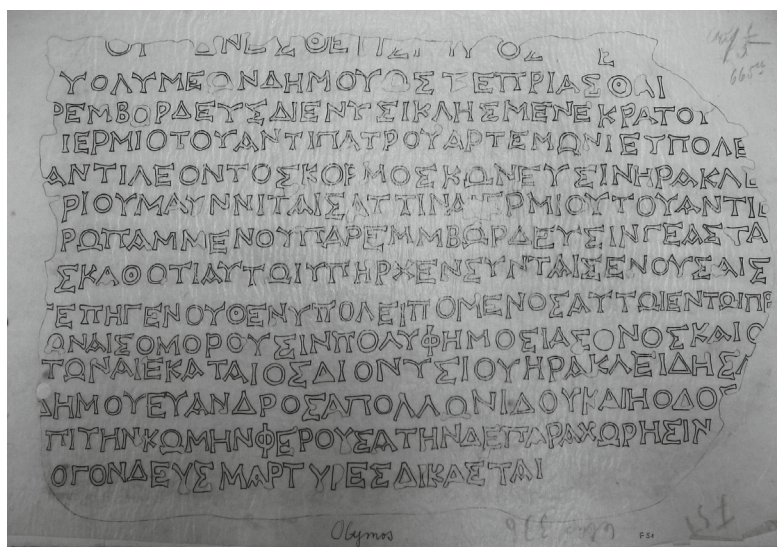 ΥΟΛΥΜΕΩΝΔΗΜΟΥΩΣΤΕΠΡΙΑΣΘΑΙ
ΡΕΜΒΟΡΔΕΥΣΔΙΕΝΥΣΙΚΛΗΣΜΕΝΕΚΡΑΤΟΥ
ΙΕΡΜΙΟΤΟΥΑΝΤΙΠΑΤΡΟΥΑΡΤΕΜΩΝΙΕΥΠΟΛΕ
ΑΝΤΙΛΕΟΝΤΟΣΚΟΡΜΟΣΚΩΝΕΥΣΙΝΗΡΑΚΛΕ
ΡΙΟΥΜΑΥΝΝΙΤΑΙΣΑΤΤΙΝΑΕΡΜΙΟΥΤΟΥΑΝΤΙΠ
ΡΩΠΑΜΜΕΝΟΥΠΑΡΕΜΜΒΩΡΔΕΥΣΙΝΓΕΑΣΤΑ
ΣΚΑΘΟΤΙΑΥΤΩΙΥΠΗΡΧΕΝΣΥΝΤΑΙΣΕΝΟΥΣΑΙΣ
ΕΠΗΓΕΝΟΥΘΕΝΥΠΟΛΕΙΠΟΜΕΝΟΣΑΥΤΩΙΕΝΤΩΙΠΡ
ΩΝΑΙΣΟΜΟΡΟΥΣΙΝΠΟΛΥΦΗΜΟΣΙΑΣΟΝΟΣΚΑΙΟ
ΤΩΝΑΙΕΚΑΤΑΙΟΣΔΙΟΝΥΣΙΟΥΗΡΑΚΛΕΙΔΗΣ
ΔΗΜΟΥΕΥΑΝΔΡΟΣΑΠΟΛΛΩΝΙΔΟΥΚΑΙΗΟΔΟΣ
ΠΙΤΗΝΚΩΜΗΝΦΕΡΟΥΣΑΤΗΝΔΕΠΑΡΑΧΩΡΗΣΙΝ
ΟΓΟΝΔΕΥΣΜΑΡΤΥΡΕΣΔΙΚΑΣΤΑΙ
Olymos